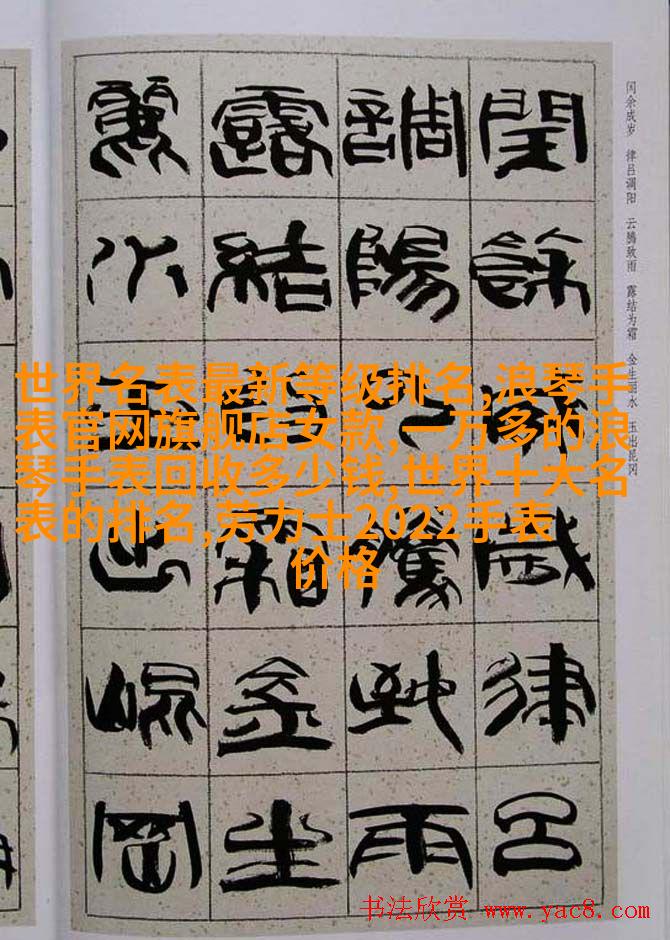 閏餘成歲律呂
調陽云騰致雨
露結為霜金生
麗水玉出崐岡
闰余成岁 律吕调阳 云腾致雨 露结为霜 金生丽水 玉出昆冈
世界名表最新等级排名,浪琴手
表官网旗舰店女款,一万多的浪
琴手表回收多少钱,世界十大名
表的排名,劳力士2022手表
价格
书法欣赏 www.yac8.com